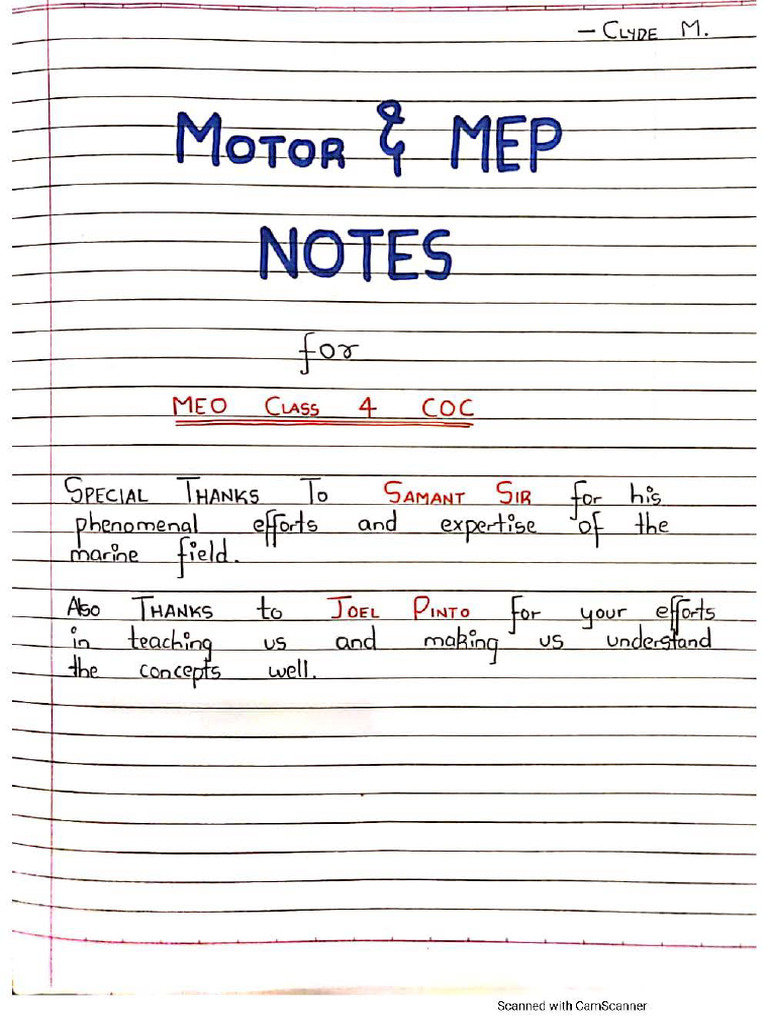 - CLYDE M.
MOTOR & MEP
NOTES
for
MEO CLASS 4 COC
SPECIAL THANKS TO SAMANT SIR for his
phenomenal efforts and expertise of the
marine field.
Also THANKS to JOEL PINTO for your efforts
in teaching us and making us understand
the concepts well.
Scanned with CamScanner